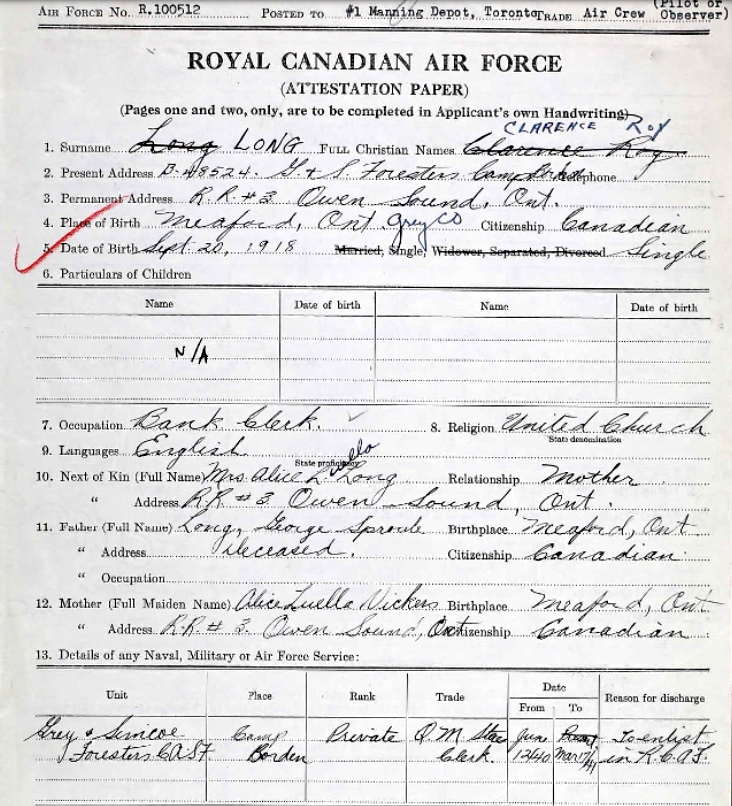 AIR FORCE NO. R.100512 POSTED TO #1 Manning Depot, Toronto TRADE Air Crew (Pilot or Observer)
ROYAL CANADIAN AIR FORCE
(ATTESTATION PAPER)
(Pages one and two, only, are to be completed in Applicant's own Handwriting)
CLARENCE Roy
1. Surname Long LONG FULL Christian Names Clarence Roy
2. Present Address B-48524. G & S Foresters Camp Telephone
3. Permanent Address R.R.#3 Owen Sound, Ont.
4. Place of Birth Meaford, Ont. Grey Co Citizenship Canadian
5. Date of Birth Sept 20, 1918 Married, Single, Widower, Separated, Divorced Single
6. Particulars of Children
Name Date of birth Name Date of birth
N/A
7. Occupation Bank Clerk. 8. Religion United Church
State denomination
9. Languages English
State proficiency
10. Next of Kin (Full Name) Mrs Alice L Long Relationship Mother
" Address R.R #3 Owen Sound, Ont.
11. Father (Full Name) Long, George Sproule Birthplace Meaford, Ont
" Address Deceased. Citizenship Canadian
" Occupation
12. Mother (Full Maiden Name) Alice Luella Vickers Birthplace Meaford, Ont
" Address R.R. # 3. Owen Sound, Ont Citizenship Canadian
13. Details of any Naval, Military or Air Force Service:
Date
Unit Place Rank Trade From To Reason for discharge
Grey & Simcoe Camp Private Q M June To enlist
Foresters C.A.S.F. Borden Clerk. 12/40 Mar 17/41 in R.C.A.F.